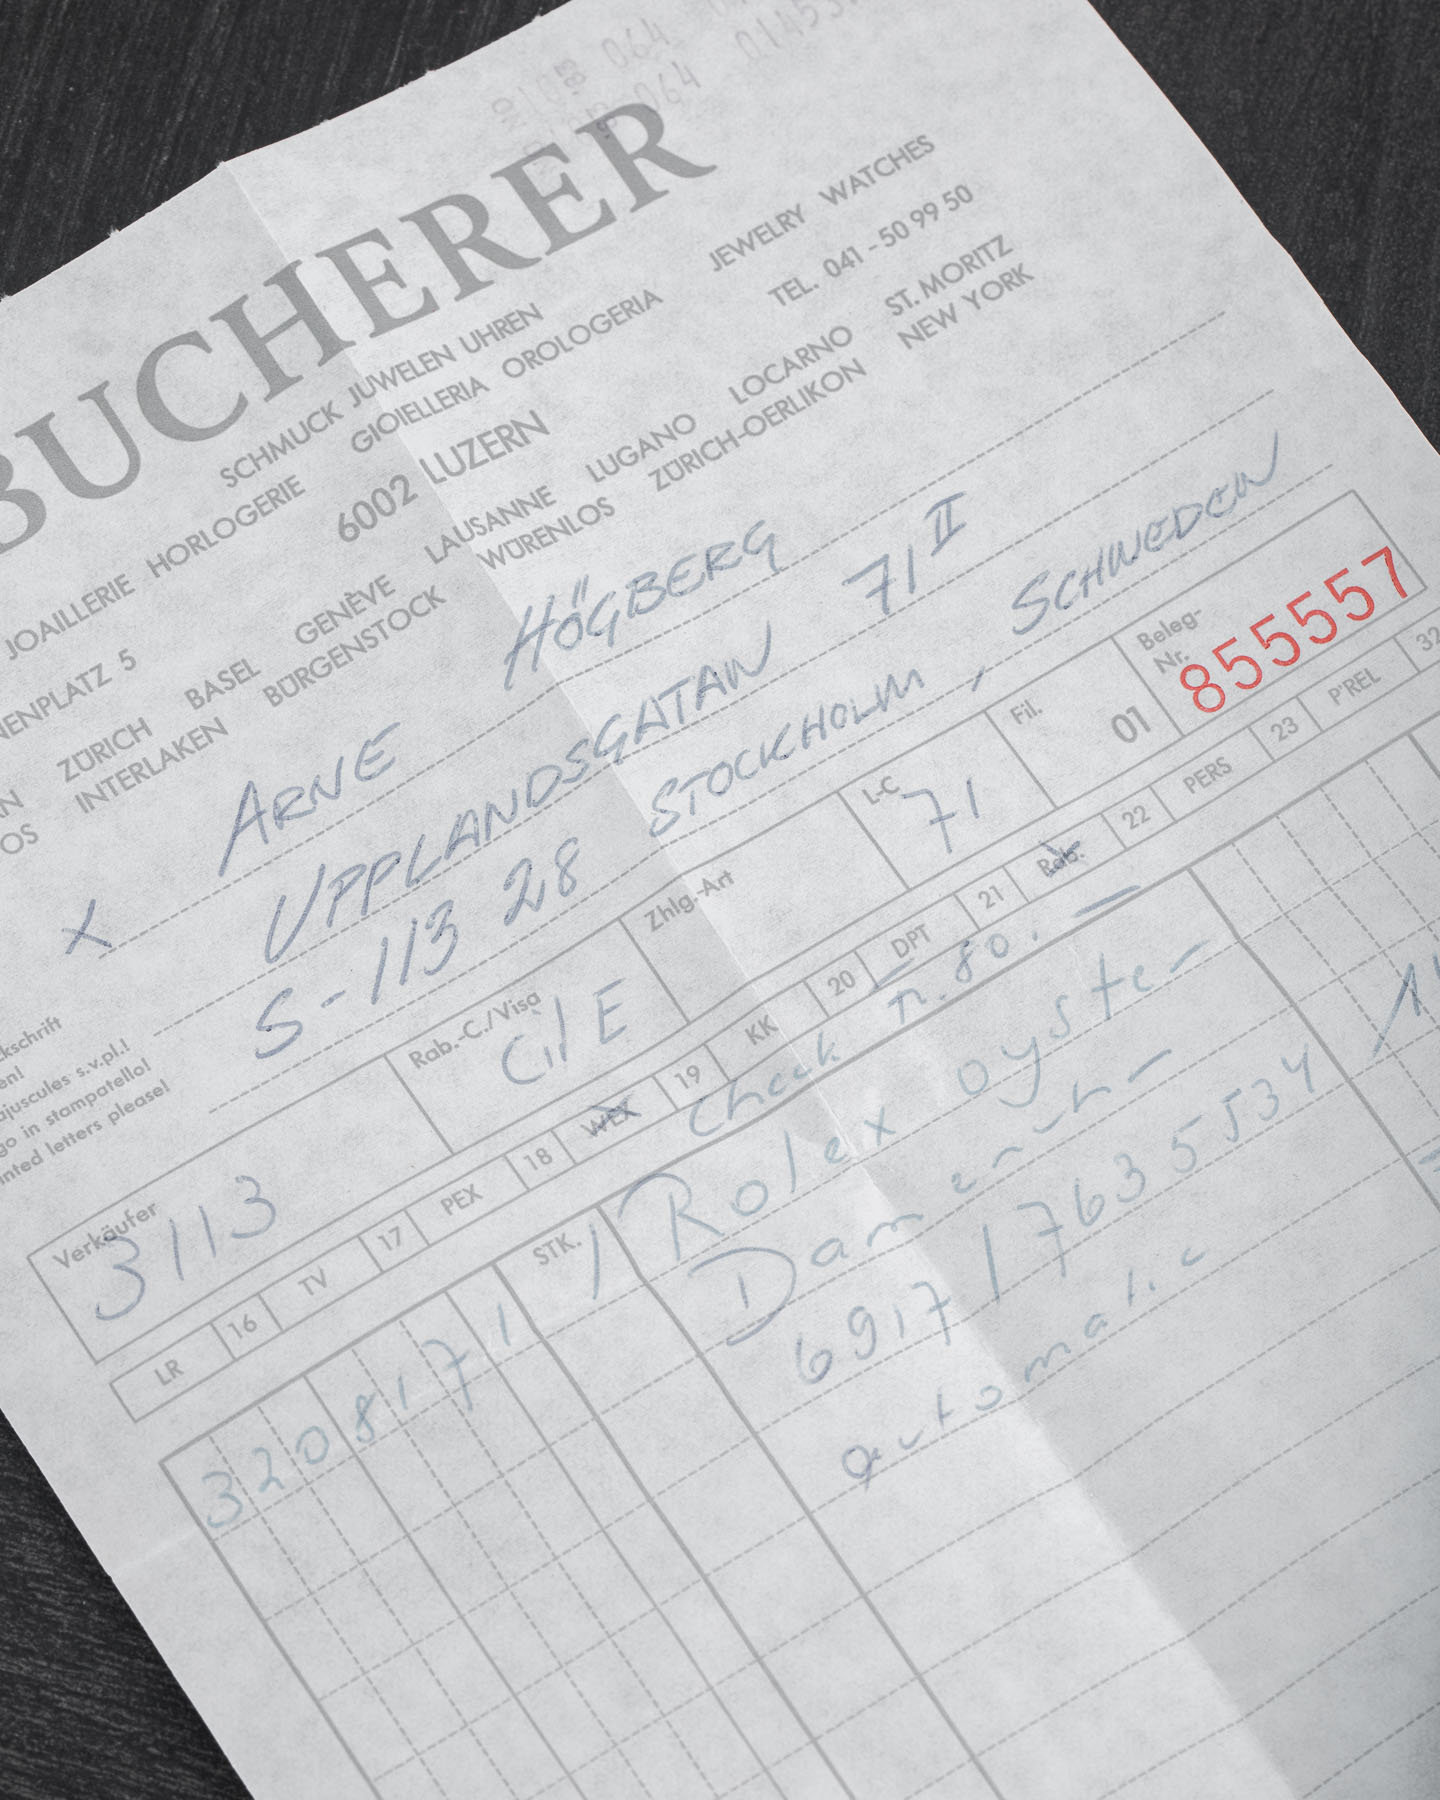 064
064
BUCHERER
SCHMUCK JUWELEN UHREN
JOAILLERIE HORLOGERIE GIOIELLERIA OROLOGERIA JEWELRY WATCHES
ENPLATZ 5 6002 LUZERN TEL. 041 - 50 99 50
ZÜRICH BASEL GENÈVE LAUSANNE LUGANO LOCARNO ST. MORITZ
INTERLAKEN BÜRGENSTOCK WÜRENLOS ZÜRICH-OERLIKON NEW YORK
x ARNE HÖGBERG
UPPLANDSGATAN 71 II
S-113 28 STOCKHOLM, SCHWEDEN
kschrift
en!
ajuscules s.v.pl.!
go in stampatello!
inted letters please!
Verkäufer 3113 Rab.-C./Visa Zhlg.-Art L-C 71 Fil. 01 Beleg-Nr. 855557
LR 16 TV 17 PEX 18 WEX 19 KK 20 DPT 21 Rab. 22 PERS 23 P'REL 32
check n. 80.-
STK.
3208171 1 Rolex oyster
Dam
6917 / 7635534
automatic